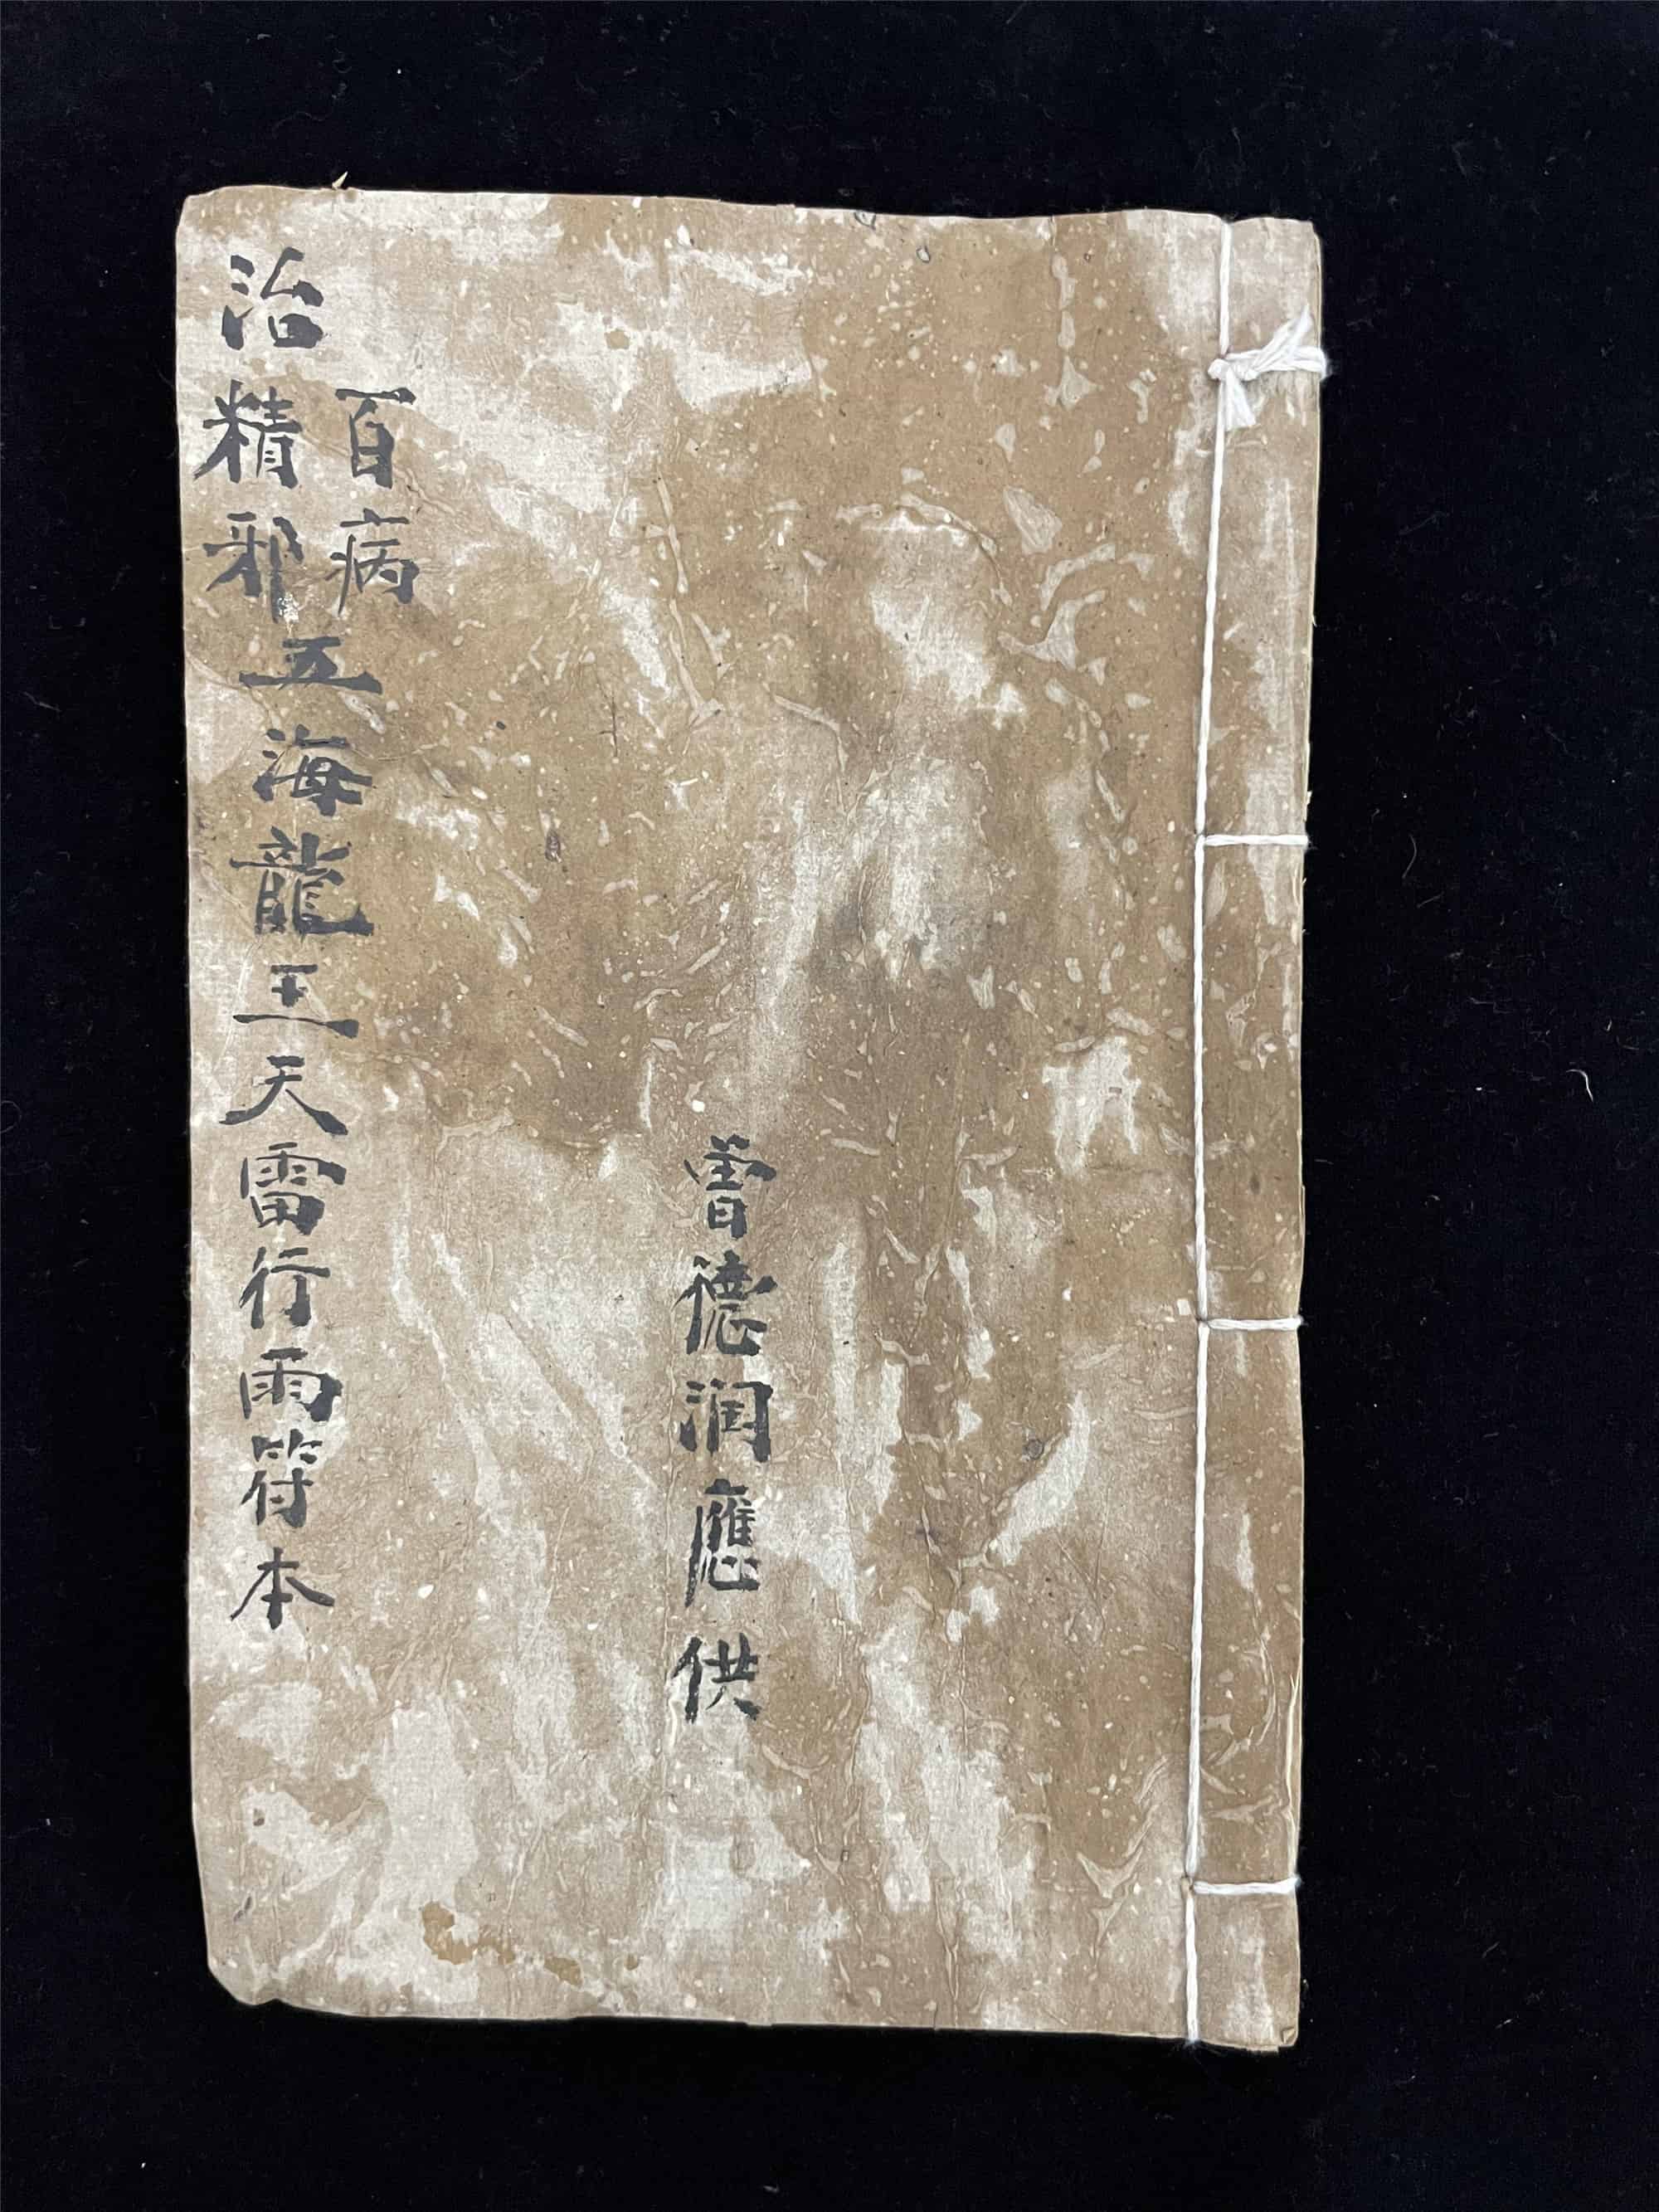 曾德润應供
百病
治精邪五海龍王天雷行雨符本